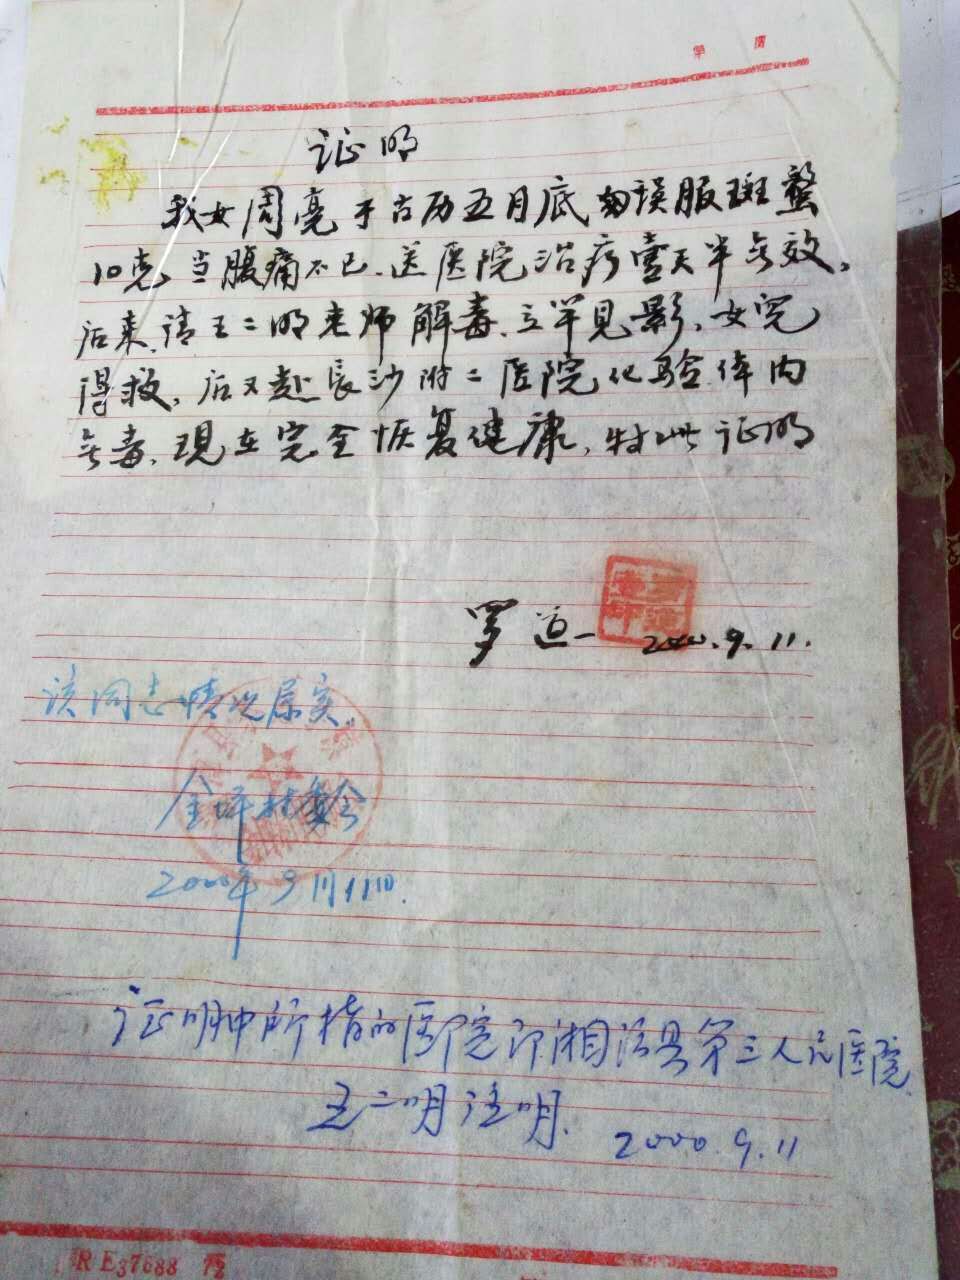 证明
我女周亮于古历五月底勿误服斑蟊
10克,当腹痛不已.送医院治疗壹天半无效,
后来,请王二明老师解毒,立竿见影,女完
得救,后又赴长沙附二医院化验体内
无毒,现在完全恢复健康,特此证明
罗 2000.9.11.
该同志情况属实.
金坪村委会
2000年9月11日
证明中所指的医院即湘潭县第三人民医院
王二明注明.
2000.9.11
R E37688